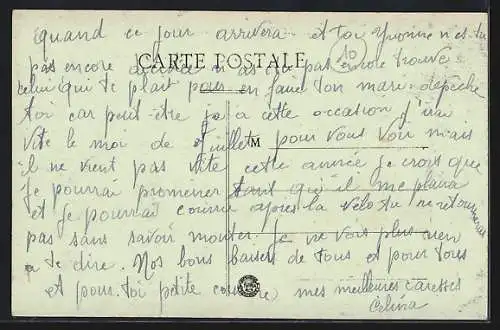 quand ce jour arrivera et toi Yvonne n'es tu
CARTE POSTALE
10
pas encore n'as tu pas encore trouve
celui qui te plait pour en faire ton mari depeche
toi car peut-etre ça a cette occasion j'irai
vite le moi de Juillet pour vous voir mais
M
il ne vient pas vite cette année je crois que
je pourrai promener tant qu'il me plaira
et je pourrai courir apres la velo tu retournerai
pas sans savoir monter. Je ne vois plus rien
a te dire. Nos bons baisers de tous et pour tous
et pour toi petite mes meilleures caresses
Celina